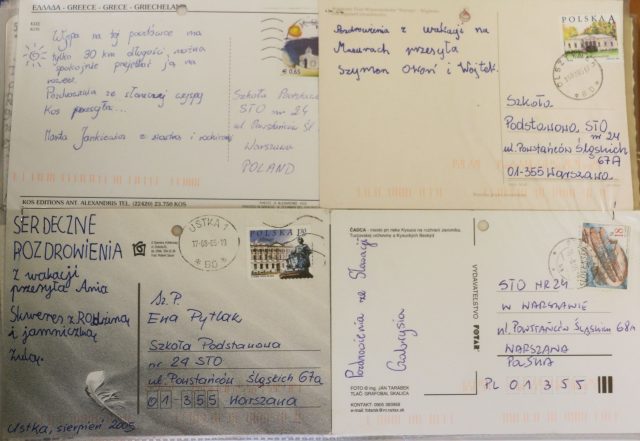 ΕΛΛΑΔΑ - GREECE - GRECE - GRIECHELAND
Wyspa na tej pocztówce ma
tylko 30 km długości, można
spokojnie przejechać ją na
rowerze.
Pozdrowienia ze słonecznej wyspy
Kos przesyła...
Marta Jankiewicz z siostrą i rodzicami
€ 0,65
Szkoła Podstawowa
STO nr 24
ul. Powstańców Śl.
Warszawa
POLAND
KOS EDITIONS ANT. ALEXANDRIS TEL. (22420) 23.750 KOS
Pozdrowienia z wakacji na
Mazurach przesyła
Szymon Okoń i Wojtek.
POLSKA
Szkoła
Podstawowa STO
nr 24
ul. Powstańców Śląskich
67A
01-355 Warszawa
SERDECZNE
POZDROWIENIA
z wakacji
przesyła Ania
Skweres z Rodziną
i jamniczką
Zulą.
Ustka, sierpień 2005
USTKA 1
17-08-05-19
Sz. P.
Ewa Pytlak
Szkoła Podstawowa
nr 24 STO
ul. Powstańców Śląskich 67a
01-355 Warszawa
ČADCA - mesto pri rieke Kysuca na rozhraní Javorníkov,
Turzovskej vrchoviny a Kysuckých Beskýd
Pozdrowienia ze Słowacji
Gabrysia
VYDAVATEĽSTVO FOTAR
STO NR 24
W WARSZAWIE
ul. POWSTAŃCÓW ŚLĄSKICH 68A
WARSZAWA
POLSKA
PL 01355
FOTO © Ing. JÁN TARÁBEK
TLAČ: GRAFOBAL SKALICA
KONTAKT: 0905 385959